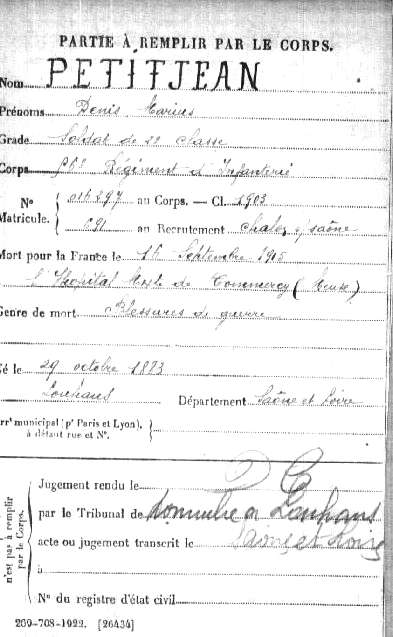 PARTIE À REMPLIR PAR LE CORPS.
Nom PETITJEAN
Prénoms Denis Marius
Grade Soldat de 2e Classe
Corps Régiment d'Infanterie
N° 016297 au Corps. — Cl. 1903
Matricule. 691 au Recrutement Chalon s/ Saône
Mort pour la France le 16 Septembre 1915
l'Hôpital Mixte de Commercy (Meuse)
Genre de mort Blessures de guerre
Né le 29 octobre 1883
Louhans Département Saône et Loire
Arrt municipal (pr Paris et Lyon),
à défaut rue et N°.
n'est pas à remplir
par le Corps.
Jugement rendu le
par le Tribunal de Louhans
acte ou jugement transcrit le Saône et Loire
à
N° du registre d'état civil
209-708-1922. [26434]